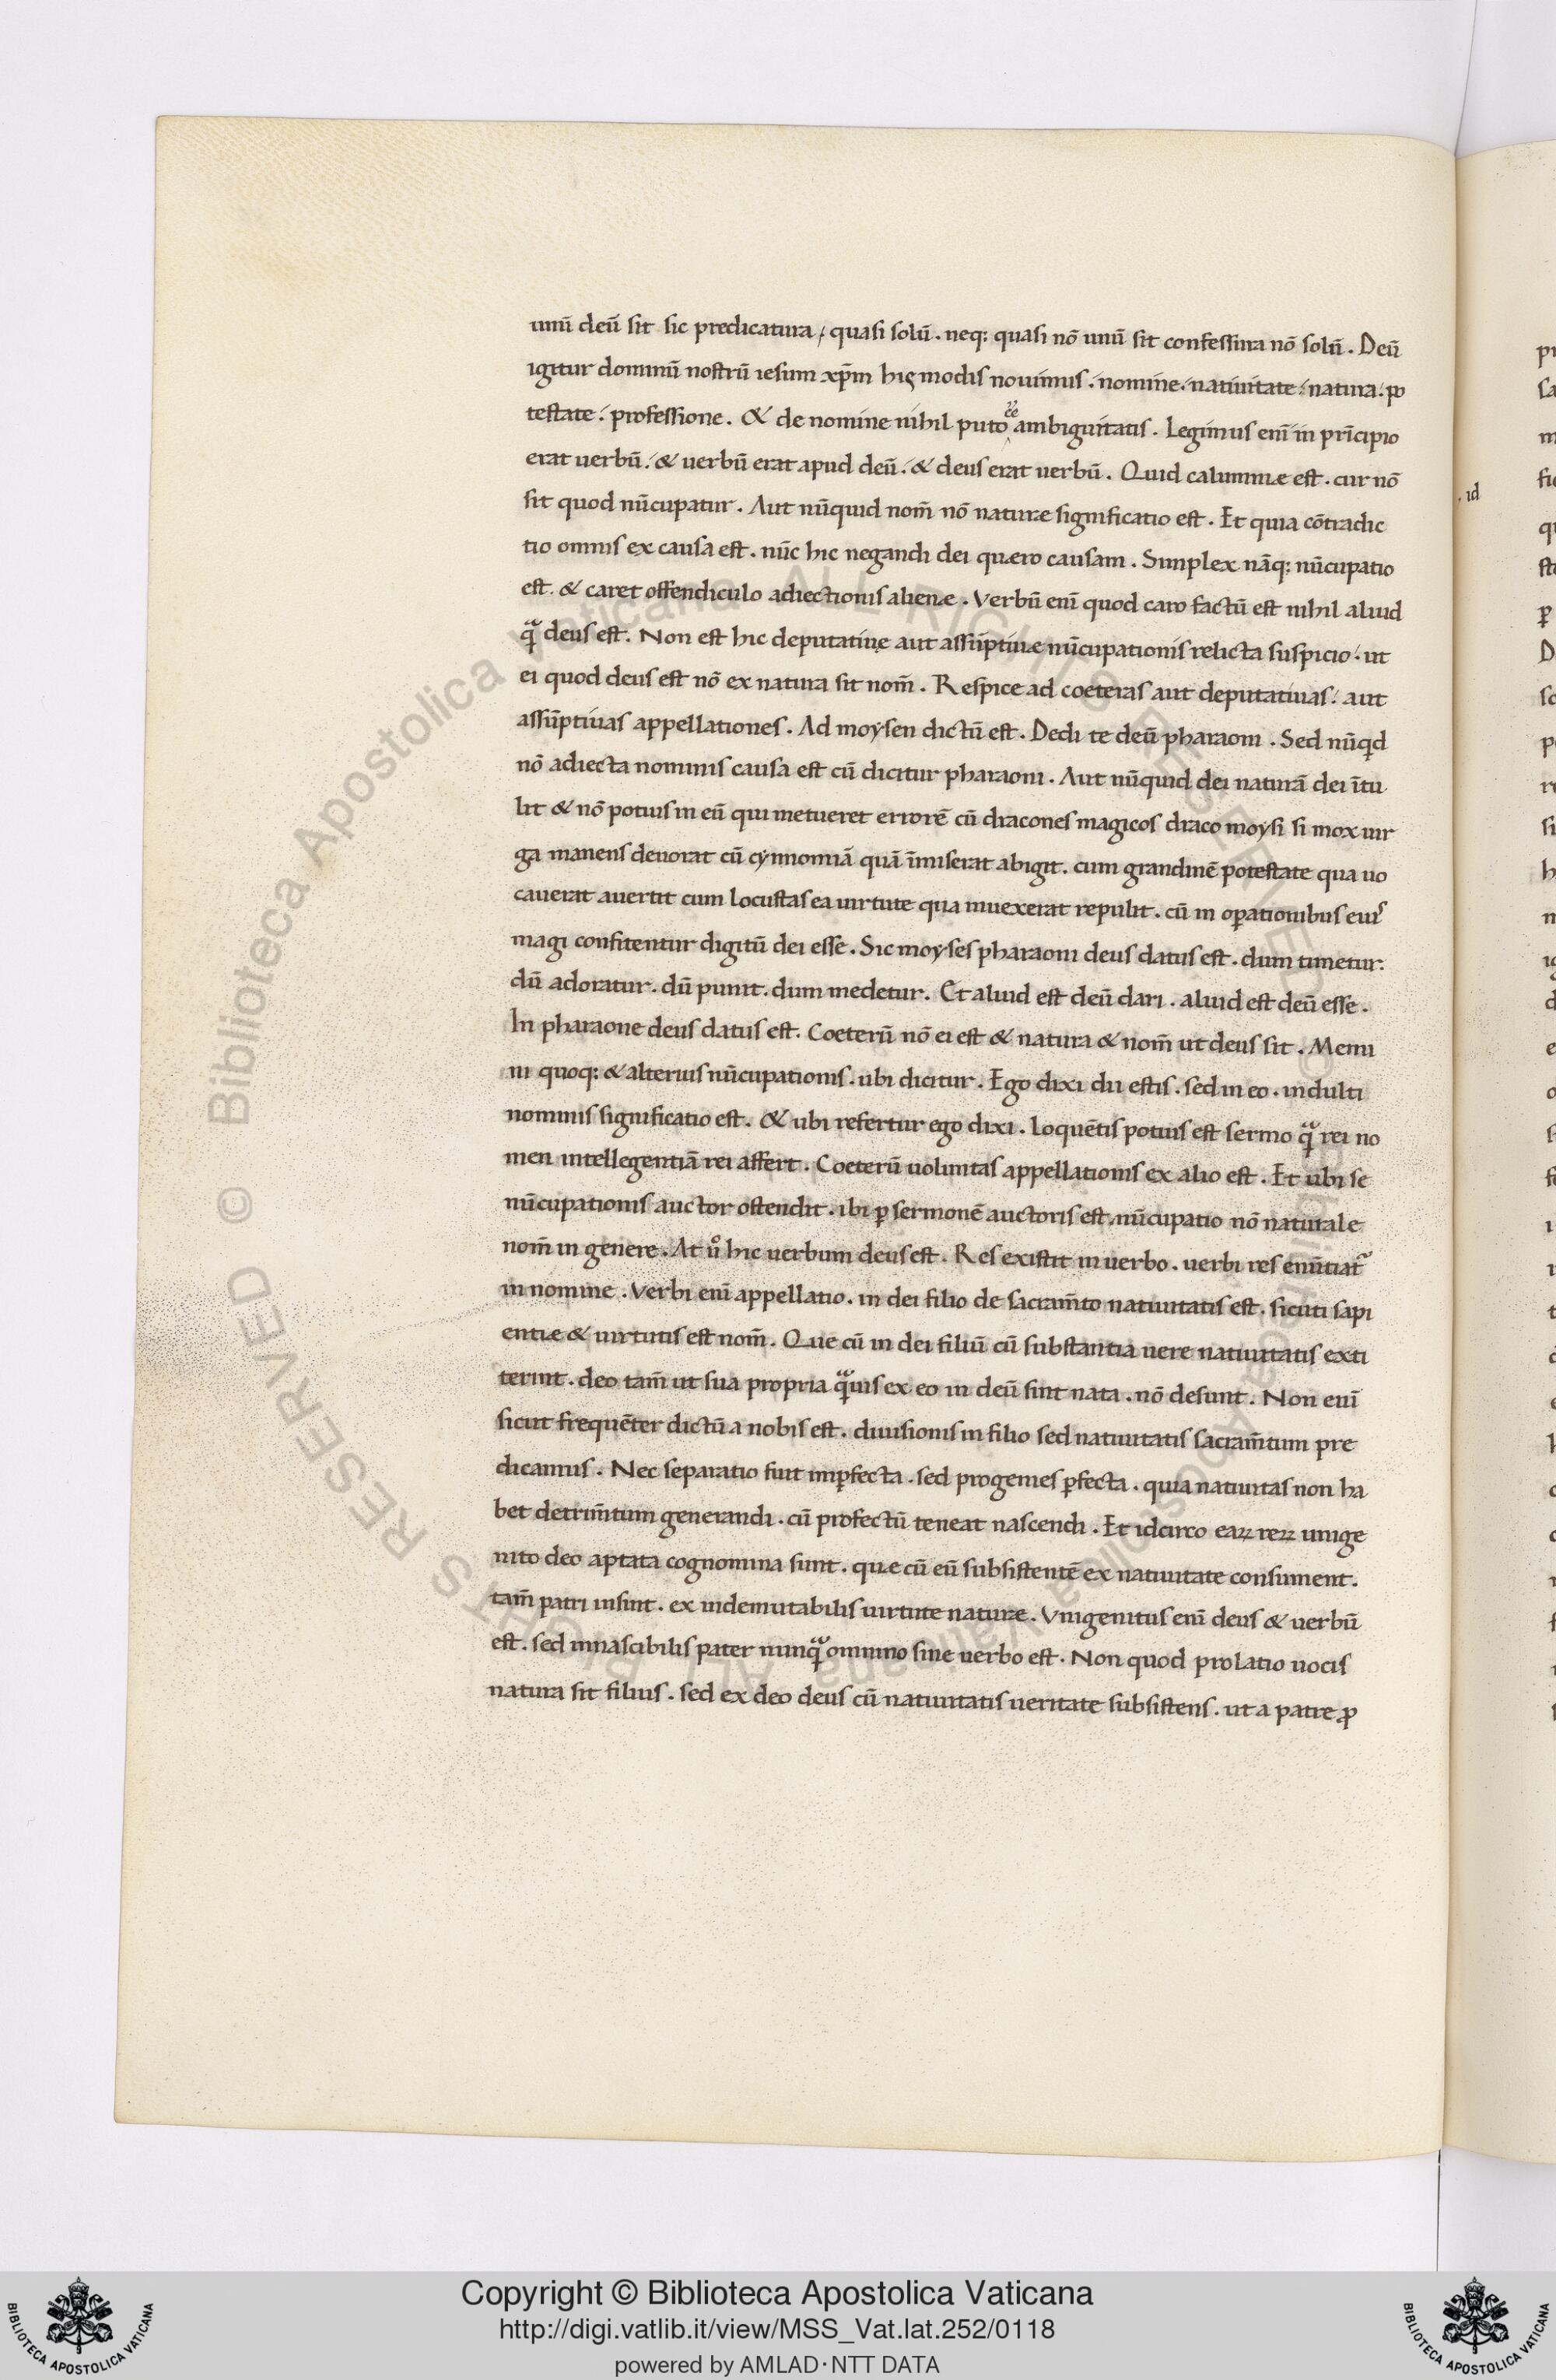 unū deū sit sic predicatura / quasi solū . neq; quasi nō unū sit confessura nō solū . Deū
igitur dominū nostrū iesum xp̄m his modis nouimus . nomine . natiuitate . natura . po
testate . professione . & de nomine nihil puto ēē ambiguitatis . Legimus eni᷑ in prīcipio
erat uerbū . & uerbū erat apud deū . & deus erat uerbū . Quid calumniæ est . cur nō
sit quod nūcupatur . Aut nūquid nom̄ nō naturæ significatio est . Et quia cōtradic
tio omnis ex causa est . nūc hic negandi dei quæro causam . Simplex nāq; nūcupatio
est . & caret offendiculo adiectionis alienæ . Verbū enī quod caro factū est nihil aliud
qᷓ deus est . Non est hic deputatiuę aut assūptiuæ nūcupationis relicta suspicio . ut
ei quod deus est nō ex natura sit nom̄ . Respice ad coeteras aut deputatiuas . aut
assūptiuas appellationes . Ad moysen dictū est . Dedi te deū pharaoni . Sed nūqd
nō adiecta nominis causa est cū dicitur pharaoni . Aut nūquid dei naturā dei ītu
lit & nō potius in eū qui metueret errorē cū dracones magicos draco moysi si mox uir
ga manens deuorat cū cynnomiā quā īmiserat abigit . cum grandinē potestate qua uo
cauerat auertit cum locustas ea uirtute qua inuexerat repulit . cū in oꝑationibus eius
magi confitentur digitū dei esse . Sic moyses pharaoni deus datus est . dum timetur .
dū adoratur . dū punit . dum medetur . Et aliud est deū dari . aliud est deū esse .
In pharaone deus datus est . Coeterū nō ei est & natura & nom̄ ut deus sit . Memi
ni quoq; & alterius nūcupationis . ubi dicitur . Ego dixi dii estis . sed in eo . indulti
nominis significatio est . & ubi refertur ego dixi . loquētis potius est sermo qᷓ rei no
men intellegentiā rei affert . Coeterū uoluntas appellationis ex alio est . Et ubi se
nūcupationis auctor ostendit . ibi ꝑ sermonē auctoris est nūcupatio nō naturale
nom̄ in genere . At uͦ hic uerbum deus est . Res existit in uerbo . uerbi res enūtiat᷑
in nomine . Verbi enī appellatio . in dei filio de sacram̄to natiuitatis est . sicuti sapi
entiæ & uirtutis est nom̄ . Que cū in dei filiū cū substantia uere natiuitatis exti
terint . deo tam̄ ut sua propria qᷓuis ex eo in deū sint nata . nō desunt . Non enī
sicut frequēter dictū a nobis est . diuisionis in filio sed natiuitatis sacram̄tum pre
dicamus . Nec separatio fuit imꝑfecta . sed progenies ꝑfecta . quia natiuitas non ha
bet detrim̄tum generandi . cū profectū teneat nascendi . Et idcirco eaꝝ reꝝ unige
nito deo aptata cognomina sunt . quæ cū eū subsistentē ex natiuitate consument .
tam̄ patri insint . ex indemutabilis uirtute naturæ . Vnigenitus enī deus & uerbū
est . sed innascibilis pater nunqᷓ omnino sine uerbo est . Non quod prolatio uocis
natura sit filius . sed ex deo deus cū natiuitatis ueritate subsistens . ut a patre ꝓ
. id
Copyright © Biblioteca Apostolica Vaticana
http://digi.vatlib.it/view/MSS_Vat.lat.252/0118
powered by AMLAD · NTT DATA